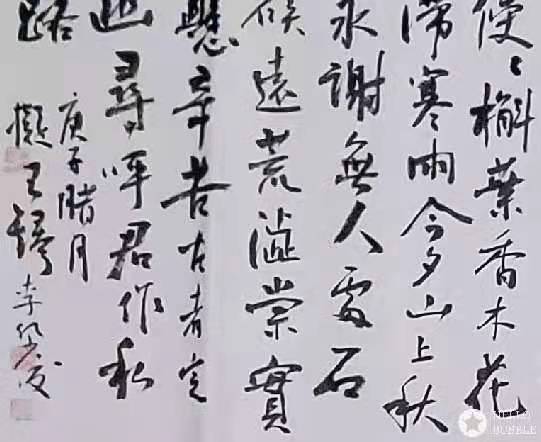 侵〻槲葉香木花
滯寒雨今夕山上秋
永謝無人處石
遠荒澁棠實
懸辛苦古者定
幽尋呼君作私
路
庚子腊月
擬王鐸 李
BUBBLE